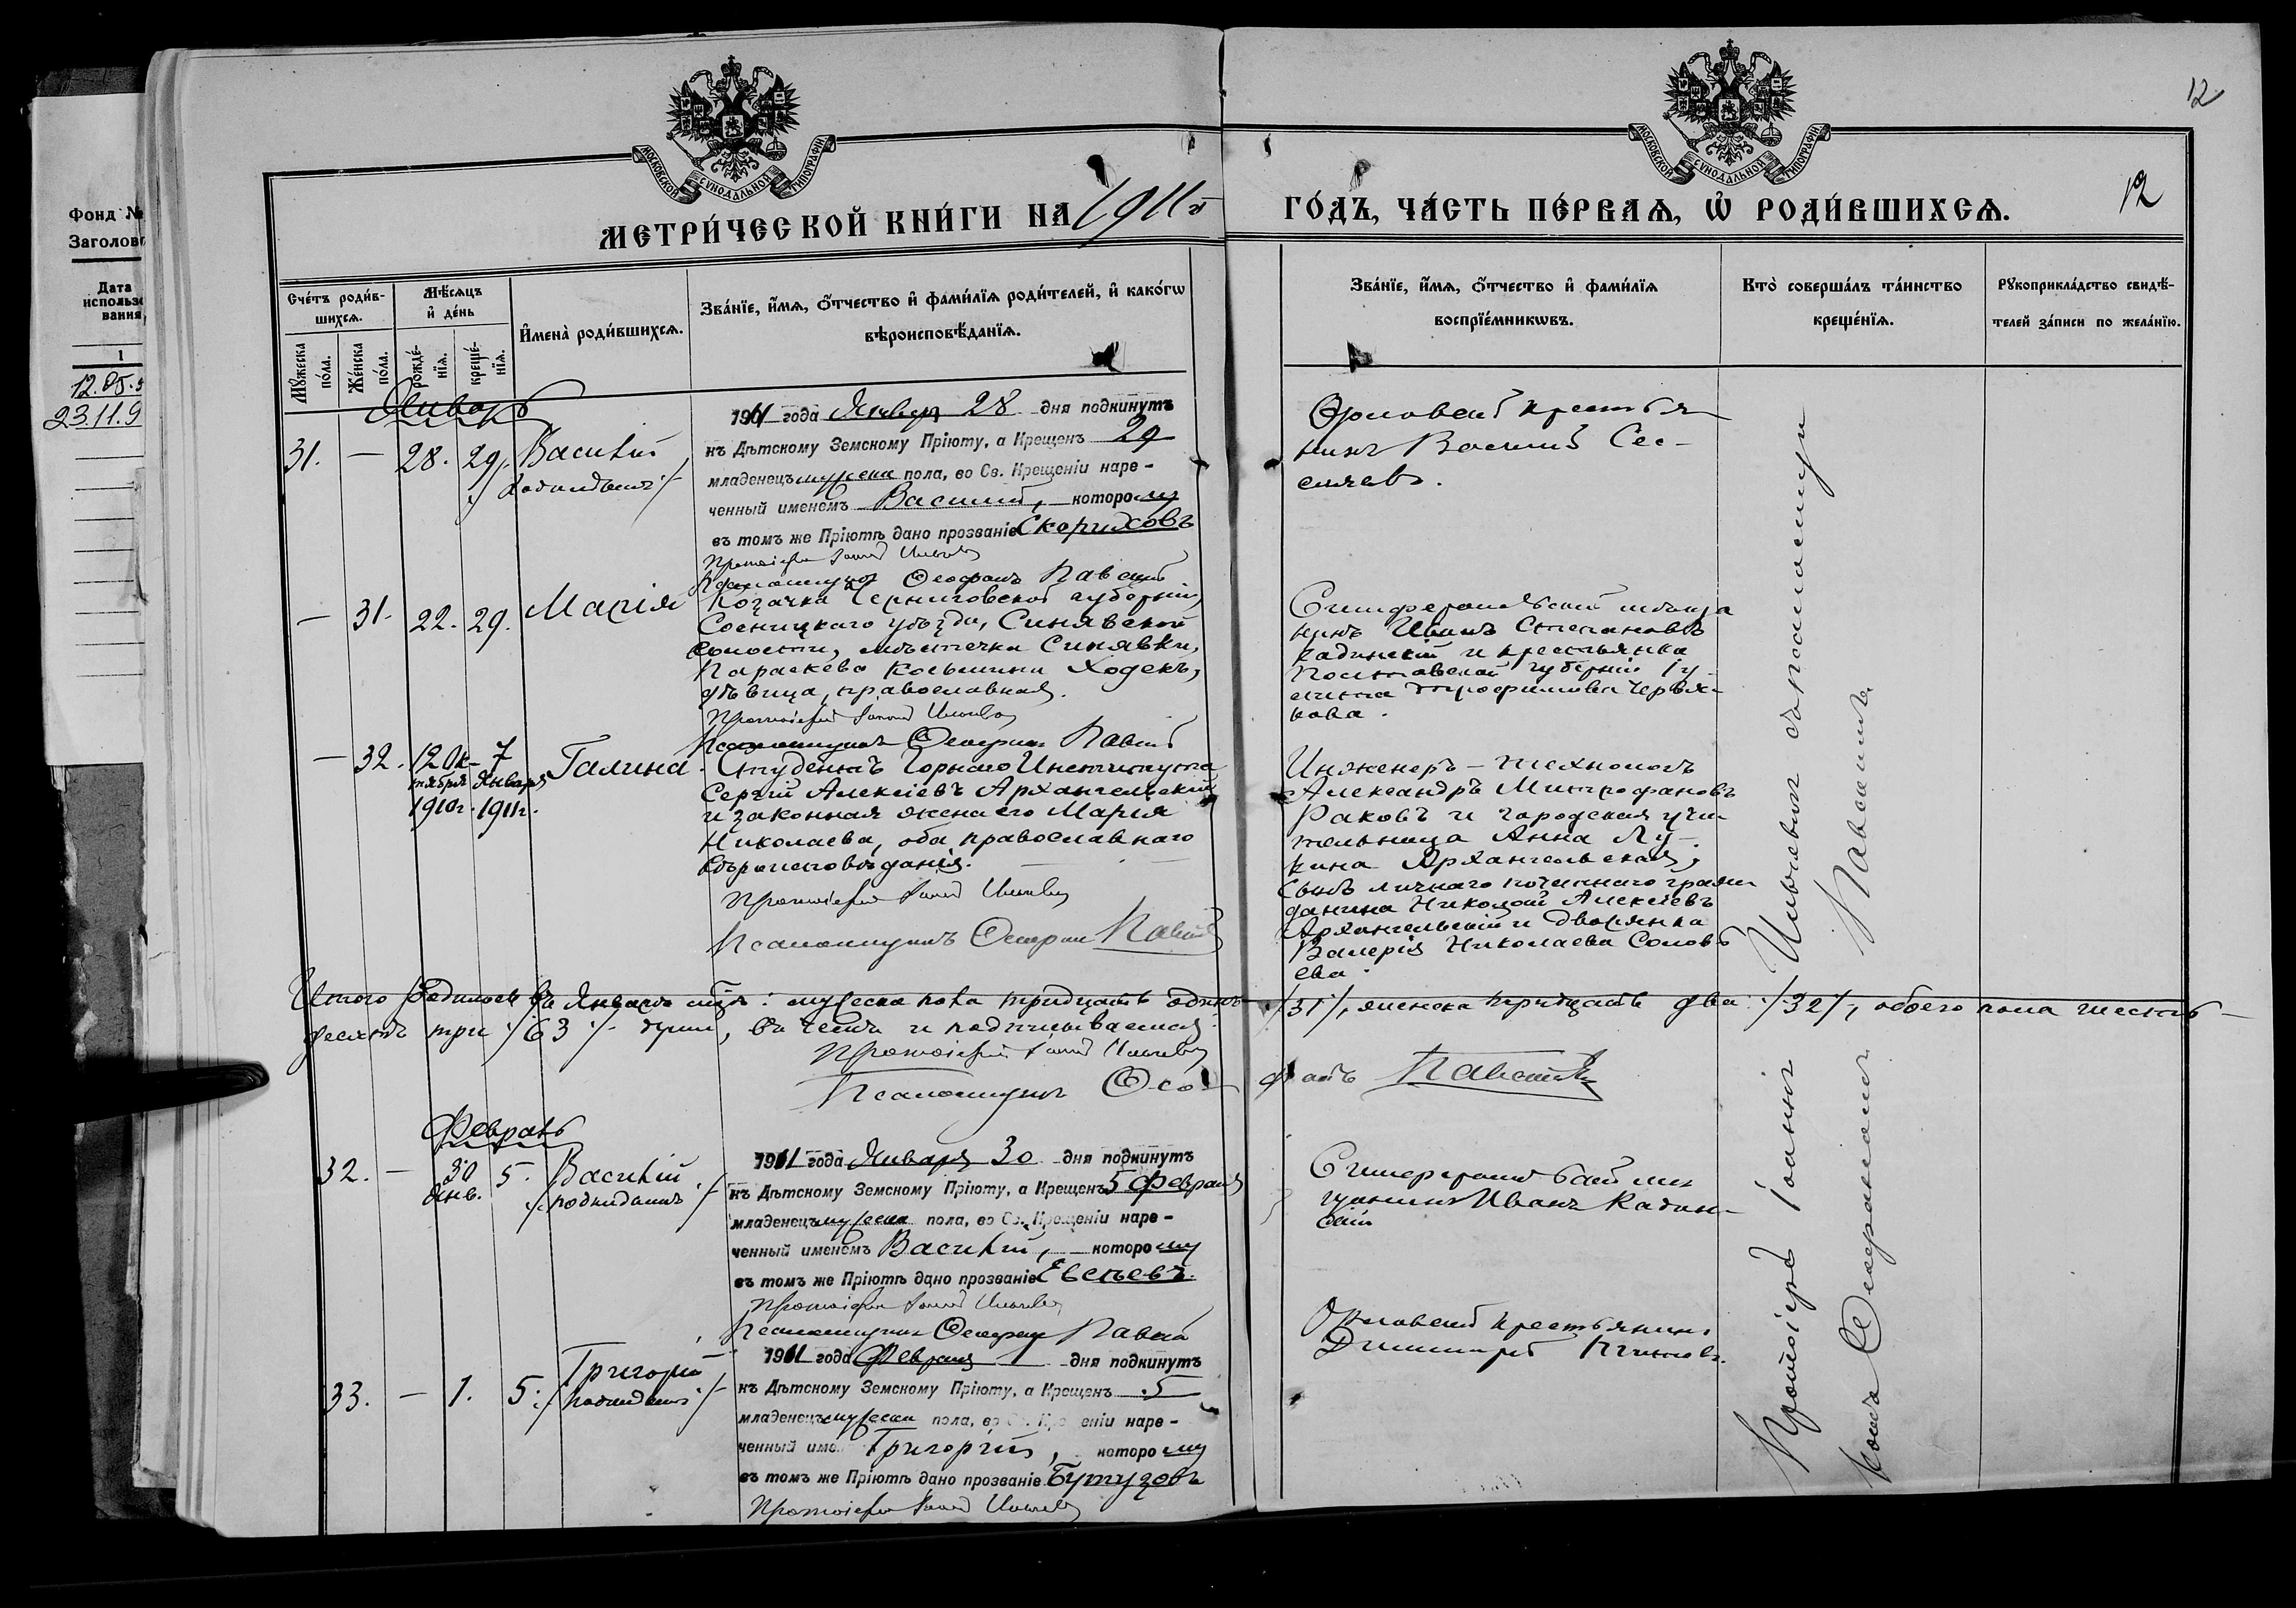 12
МОСКОВСКОЙ СУНОДАЛЬНОЙ ТИПОГРАФІИ
МОСКОВСКОЙ СУНОДАЛЬНОЙ ТИПОГРАФІИ
Фонд №
Заголов
Дата
использо
вания
1
12.05.
23.11.9
МЕТРИ́ЧЕСКОЙ КНИ́ГИ НА 1911й
ГО́ДЪ, ЧА́СТЬ ПЕ́РВАѦ, Ѡ҆ РОДИ́ВШИХСѦ.
12
Сче́тъ роди́в-
шихсѧ.
Мꙋ́жеска
по́ла.
Же́нска
по́ла.
Мѣ́сѧцъ
и҆ де́нь
рожде́-
нїѧ.
креще́-
нїѧ.
И҆мена̀ роди́вшихсѧ.
Зва́нїе, и҆́мѧ, ѻ҆́тчество и҆ фами́лїѧ роди́телей, и҆ како́гѡ
вѣроисповѣ́данїѧ.
Зва́нїе, и҆́мѧ, ѻ҆́тчество и҆ фами́лїѧ
воспрїе́мникѡвъ.
Кто̀ соверша́лъ та́инство
креще́нїѧ.
Рꙋкоприкла́дство свидѣ́-
телей за́писи по жела́нїю.
Январь
31. — 28. 29. Василій
./ подкидышъ ./
1911 года Января 28 дня подкинутъ
къ Дѣтскому Земскому Пріюту, а Крещенъ 29
младенецъ мужеска пола, во Св. Крещеніи наре-
ченный именемъ Василій, которому
въ томъ же Пріютѣ дано прозваніе Скориховъ
Протоіерей Іоаннъ
Псаломщикъ Ѳеофанъ Павскій
Орловскій крестья-
нинъ Василій
— 31. 22. 29. Марія
Козачка Черниговской губерніи,
Сосницкаго уѣзда, Синявской
волости, мѣстечка Синявки,
Параскева Косьмина Ходекъ,
дѣвица, православная.
Протоіерей Іоаннъ
Псаломщикъ Ѳеофанъ Павскій
Симферопольскій мѣща
нинъ Иванъ Степановъ
Кадинскій и крестьянка
Полтавской губерніи Іу-
Трофимова Червя-
кова.
— 32. 12 Ок- 7 Галина
тября Января
1910г. 1911г.
Студентъ Горнаго Института
Сергій Алексіевъ Архангельскій
и законная жена его Марія
Николаева, оба православнаго
вѣроисповѣданія.
Протоіерей Іоаннъ
Псаломщикъ Ѳеофанъ Павскій
Инженеръ-технологъ
Александръ Митрофановъ
Раковъ и городская учи-
тельница Анна Лу-
кина Архангельская,
Сынъ личнаго почетнаго граж-
данина Николай Алексіевъ
Архангельскій и дворянка
Валерія Николаева Соловь
ева.
Итого родилось въ Январѣ мѣсяцѣ: мужеска пола тридцать одинъ ./31/., женска тридцать два ./32/., обоего пола шесть-
десятъ три ./63./ души, въ чемъ и подписываемся:
Протоіерей Іоаннъ
Псаломщикъ Ѳео-
фанъ Павскій
Февраль
32. — 30 5. Василій
Янв. ./ подкидышъ ./
1911 года Января 30 дня подкинутъ
къ Дѣтскому Земскому Пріюту, а Крещенъ 5 Февраля
младенецъ мужеска пола, во Св. Крещеніи наре-
ченный именемъ Василій, которому
въ томъ же Пріютѣ дано прозваніе Евсѣевъ.
Протоіерей Іоаннъ
Псаломщикъ Ѳеофанъ Павскій
Симферопольскій мѣ
щанинъ Иванъ Кадин-
скій
33. — 1. 5. Григорій
./ подкидышъ ./
1911 года Февраля 1 дня подкинутъ
къ Дѣтскому Земскому Пріюту, а Крещенъ 5
младенецъ мужеска пола, во Св. Крещеніи наре-
ченный име Григорій, которому
въ томъ же Пріютѣ дано прозваніе Бутузовъ
Протоіерей Іоаннъ
Орловскій крестьянинъ
Димитрій
Протоіерей Іоаннъ съ псаломщи
комъ Ѳеофаномъ Павскимъ